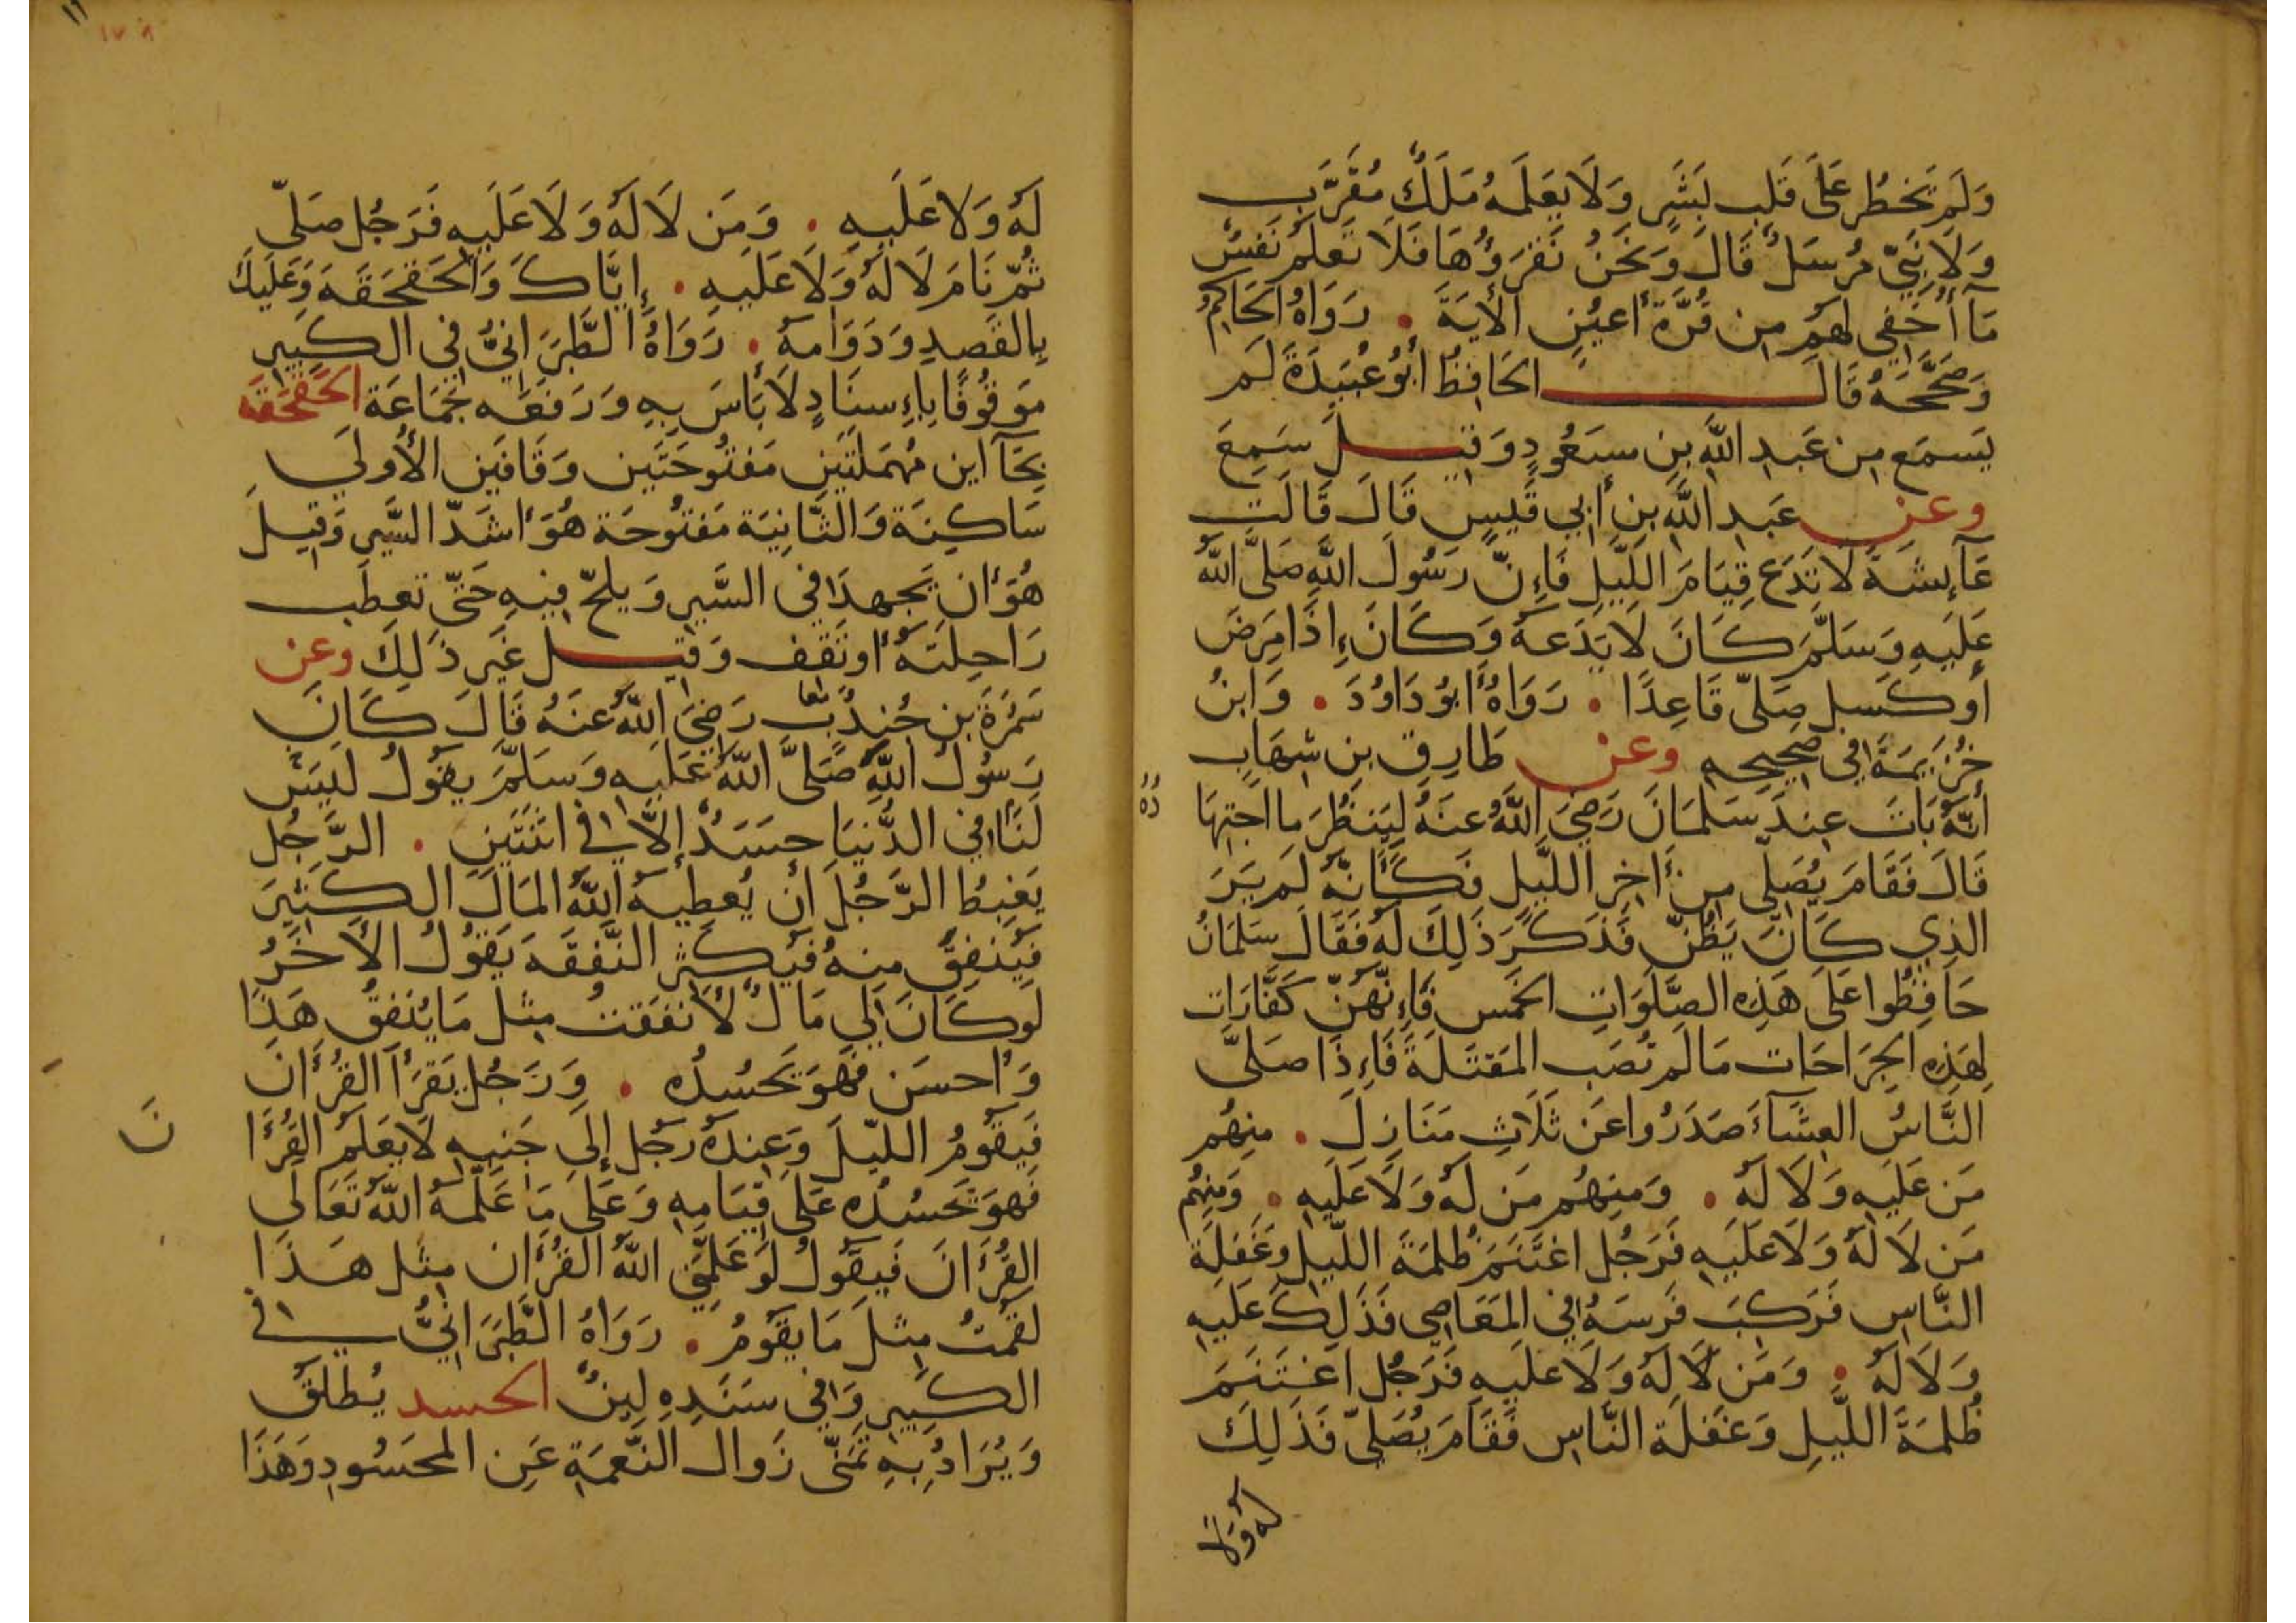 وَلَم تَخطُر عَلَى قَلبِ بَشَرٍ وَلَا يَعلَمُهُ مَلَكٌ مُقَرَّبٌ
وَلَا نَبِيٌّ مُرسَلٌ قَالَ وَنَحنُ نَقرَؤُهَا فَلَا تَعلَمُ نَفسٌ
مَآ أُخفِي لَهُم مِن قُرَّةِ أَعيُنٍ الأَيَةَ • رَوَاهُ الحَاكِمُ
وَصَحَّحَهُ قَالَ الحَافِظُ أَبُو عُبَيدَةَ لَم
يَسمَع مِن عَبدِ اللَّهِ بنِ مسعُودٍ وَقِيلَ سَمِعَ
وعن عَبدِ اللَّهِ بنِ أَبِي قَيسٍ قَالَ قَالَت
عَآئِشَةُ لَا تَدَع قِيَامَ اللَّيلِ فَإِنّ رَسُولَ اللَّهِ صَلَّى اللَّهُ
عَلَيهِ وَسَلَّمَ كَانَ لَا يَدَعهُ وَكَانَ إِذَا مَرِضَ
أَو كَسِل صَلّى قَاعِدًا • رَوَاهُ أَبُو دَاوُدَ • وَابنُ
خُزَيمَةَ فِي صَحِيحِهِ وعن طَارِقِ بنِ شِهَابٍ
أَنَّهُ بَاتَ عِندَ سَلمَانَ رَضِيَ اللَّهُ عَنهُ لِيَنظُرَ مَا اجتِهَا
دُهُ
قَالَ فَقَامَ يُصَلِّي مِن أَخِرِ اللَّيلِ فَكَأَنَّهُ لَم يَرَ
الذِي كَانَ يَظُنّ فَذَكَرَ ذَلِكَ لَهُ فَقَالَ سَلمَانُ
حَافِظُوا عَلَى هَذِهِ الصَّلَوَاتِ الخَمسِ فَإِنَّهُنّ كَفَّارَات
لِهَذِهِ الجِرَاحَات مَا لَم تُصَبِ المَقتَلَةُ فَإِذَا صَلَّى
النَّاسُ العِشَآءَ صَدَرُوا عَن ثَلَاثِ مَنَازِلَ • مِنهُم
مَن عَلَيهِ وَلَا لَهُ • وَمِنهُم مَن لَهُ وَلَا عَلَيهِ • وَمِنهُم
مَن لَا لَهُ وَلَا عَلَيهِ فَرَجُل اغتَنَمَ ظُلمَةَ اللَّيلِ وَغَفلَةَ
النَّاسِ فَرَكِبَ فَرَسَهُ فِي المَعَاصِي فَذَلِكَ عَلَيهِ
وَلَا لَهُ • وَمَن لَا لَهُ وَلَا عَلَيهِ فَرَجُل اغتَنَمَ
ظُلمَةَ اللَّيلِ وَغَفلَةَ النَّاسِ فَقَامَ يُصَلِّي فَذَلِكَ
لَهُ وَلَا
لَهُ وَلَا عَلَيهِ • وَمَن لَا لَهُ وَلَا عَلَيهِ فَرَجُل صَلّى
ثُمّ نَامَ لَا لَهُ وَلَا عَلَيهِ • إِيَّاكَ وَالحَقحَقَه وَعَلَيكَ
بِالقَصدِ وَدَوَامِهِ • رَوَاهُ الطَّبَرَانِيُّ فِي الكَبِيرِ
مَوقُوفًا بِإِسنَادٍ لَا بَأسَ بِهِ وَرَفَعَه جَمَاعَة الحَقحَقَه
بِحَآاين مُهمَلَتَينِ مَفتُوحَتَين وَقَافَينِ الأُولَى
سَاكِنَة وَالثَّانِيَة مَفتُوحَة هُوَ أَشَدّ السَّيرِ وَقِيلَ
هُوَ أَن يَجهدَ فِي السَّيرِ وَيلحّ فِيهِ حَتّى تَعطَب
رَاحِلَتهُ أَو تَقف وَقِيل غَير ذَلِكَ وعن
سَمُرَةَ بنِ جُندُبٍ رَضِيَ اللَّهُ عَنهُ قَالَ كَانَ
رَسُولُ اللَّهِ صَلَّى اللَّهُ عَلَيهِ وَسَلَّمَ يقُولُ لَيسَ
لَنَا فِي الدُّنيَا حَسَدٌ إِلَّا فِي اثنَتَينِ • الرَّجُلُ
يَغبِطُ الرَّجُلَ أَن يُعطِيَهُ اللَّهُ المَالَ الكَثِيرَ
فَيُنفِقُ مِنهُ فَيُكثِر النَّفقَه يَقُولُ الأَخَرُ
لَو كَانَ لِي مَالٌ لَأَنفَقتُ مِثلَ مَا يُنفِقُ هَذَا
وَأَحسَن فَهوَ يَحسُدُه • وَرَجُل يَقرَأُ القُرأَانَ
فَيَقُومُ اللَّيلَ وَعِندَهُ رَجُل إِلَى جَنبِهِ لَا يَعلَمُ القُرأَا
نَ
فَهوَ يَحسُدُه عَلَى قِيَامِهِ وَعَلَى مَا عَلَّمَهُ اللَّهُ تَعَالَى
القُرأَانَ فَيَقُولُ لَو عَلَّمَنِي اللَّهُ القُرأَان مِثلَ هَذَا
لَقُمتُ مِثلَ مَا يَقُومُ • رَوَاهُ الطَّبَرَانِيُّ فِي
الكَبِيرِ وَفِي سَنَدِهِ لِينٌ الحسد يُطلَقُ
وَيُرَادُ بِهِ تَمَنّى زَوال النِّعمَةِ عَنِ المحسُودِ وَهَذَا